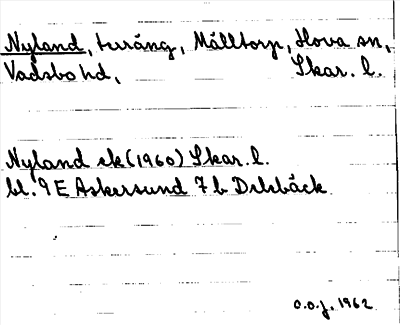 Nyland, teräng, Målltorp, Hova sn,
Vadsbo hd, Skar. l.
Nyland ek (1960) Skar. l.
bl. 9 E Askersund 7 b Delsbäck
o.o.j. 1962